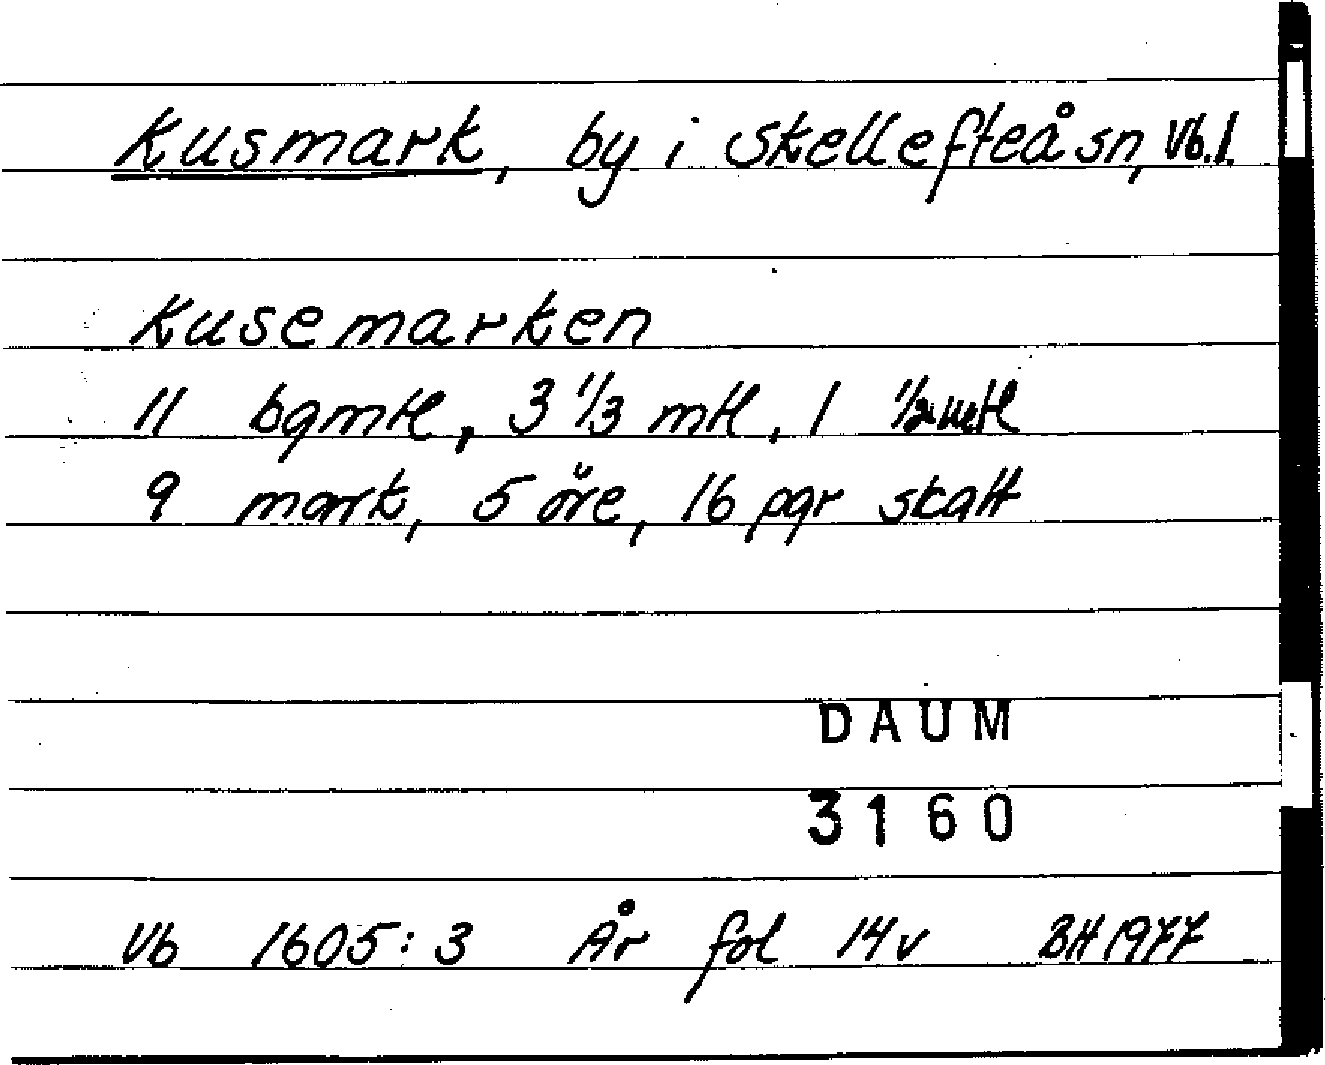 Kusmark, by i Skellefteå sn, Vb.l.
Kusemarken
11 bgmtl, 3 1/3 mtl, 1 1/2 mtl
9 mark, 5 öre, 16 pgr skatt
DAUM
3160
Vb 1605:3 År fol 14v BH 1977